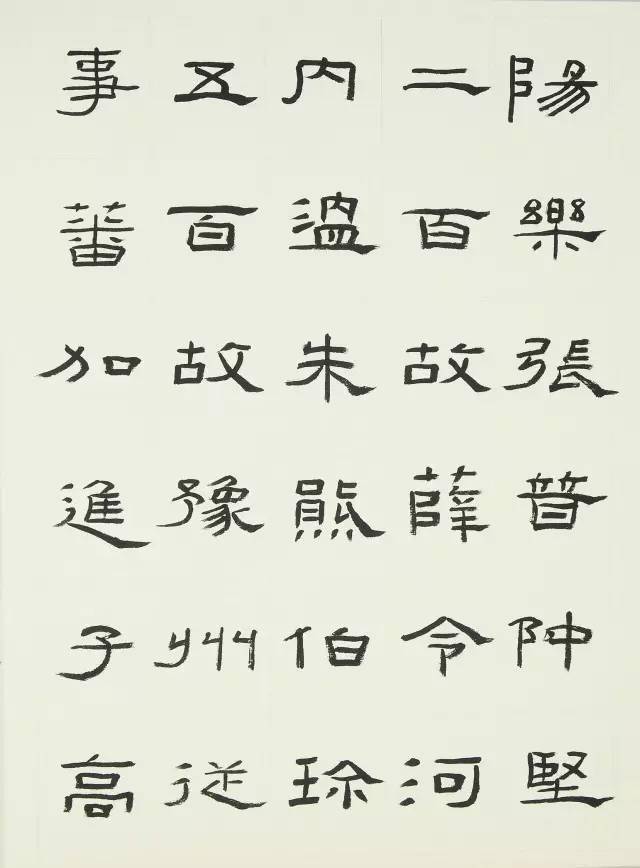 陽樂張普仲堅
二百故薛令河
內溫朱熊伯珍
五百故豫州從
事蕃加進子高